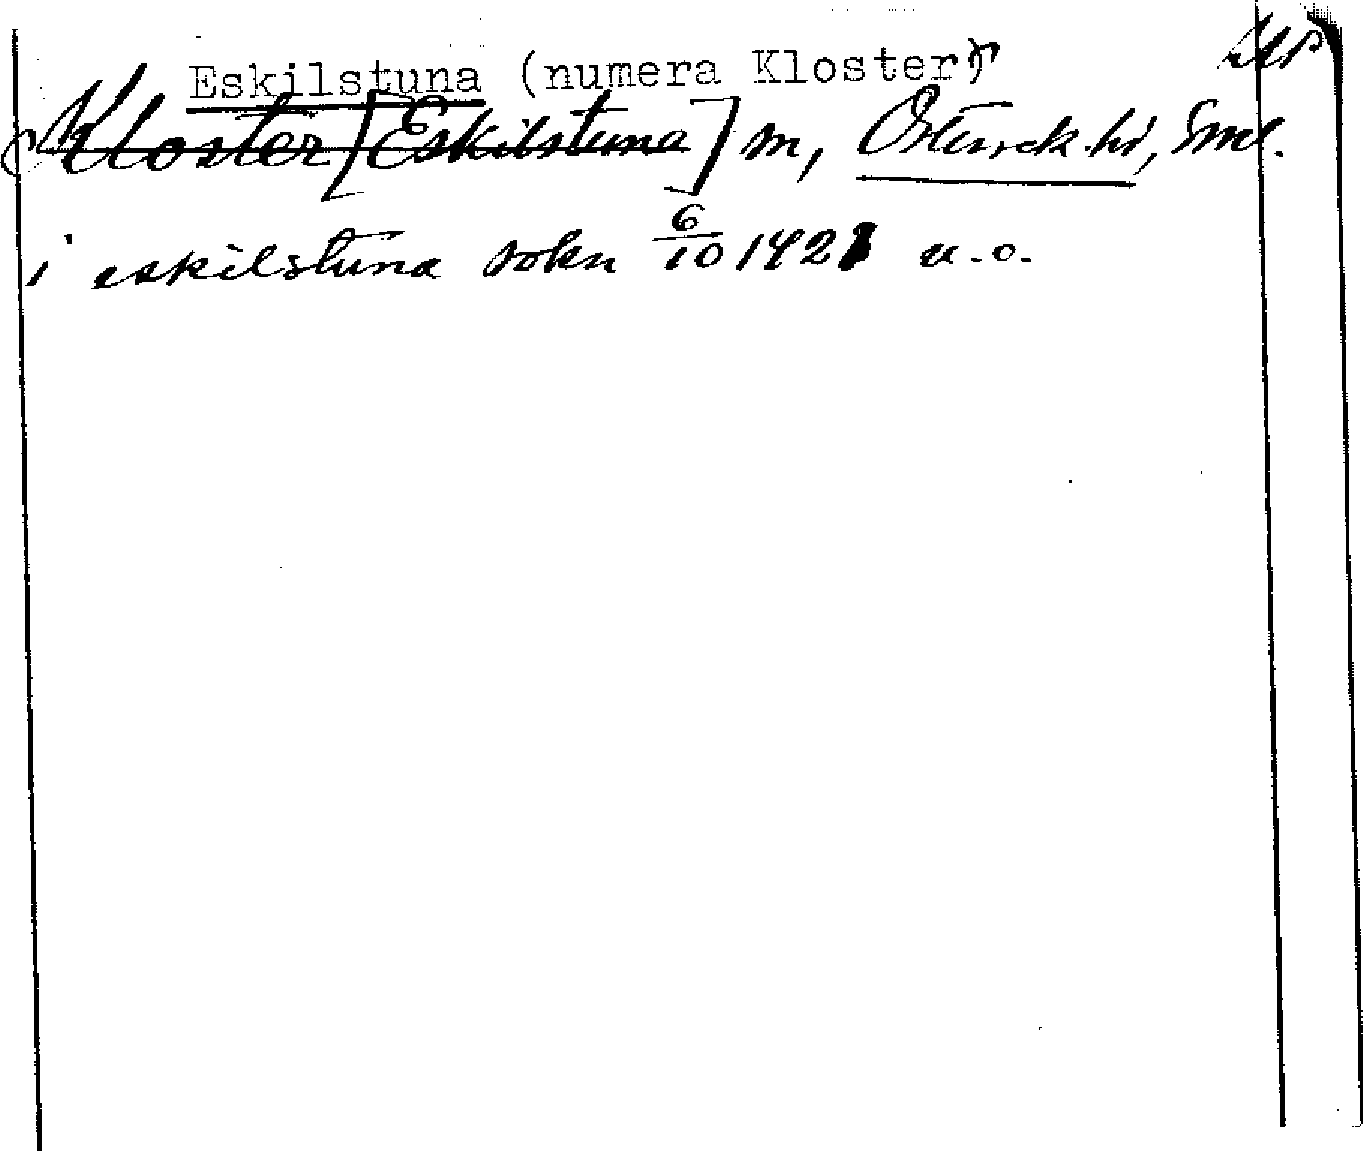 Eskilstuna (numera Kloster)
Kloster [Eskilstuna] sn, Österrek. hd, Sml.
i eskilstuna sokn 6/10 1421 u.o.